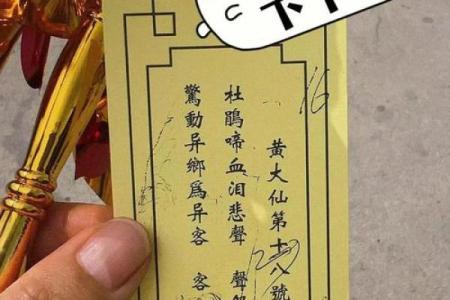 黃大仙第十八號
杜鵑啼血泪悲聲 聲
驚動异鄉爲异客 客
16